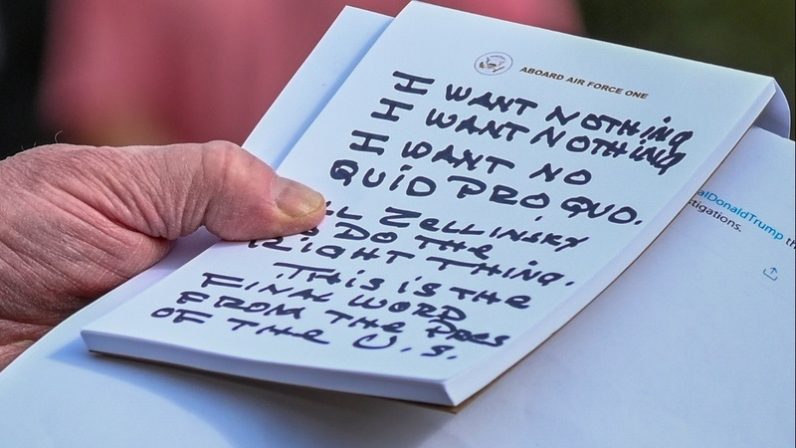 ABOARD AIR FORCE ONE
I WANT NOTHING
I WANT NOTHING
I WANT NO
QUID PRO QUO.
LL ZELLINSKY
O DO THE
RIGHT THING.
THIS IS THE
FINAL WORD
FROM THE PRES
OF THE U.S.
alDonaldTrump th
stigations.